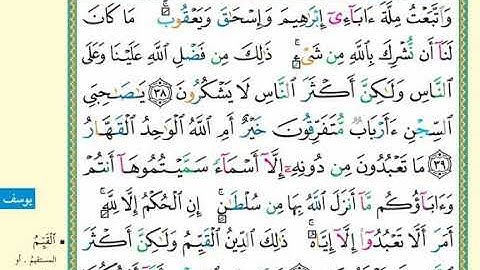 وَاتَّبَعْتُ مِلَّةَ ءَابَآءِىٓ إِبْرَٰهِيمَ وَإِسْحَٰقَ وَيَعْقُوبَ ۚ مَا كَانَ
لَنَآ أَن نُّشْرِكَ بِٱللَّهِ مِن شَىْءٍ ۚ ذَٰلِكَ مِن فَضْلِ ٱللَّهِ عَلَيْنَا وَعَلَى
ٱلنَّاسِ وَلَٰكِنَّ أَكْثَرَ ٱلنَّاسِ لَا يَشْكُرُونَ ٣٨ يَٰصَٰحِبَىِ
ٱلسِّجْنِ ءَأَرْبَابٌ مُّتَفَرِّقُونَ خَيْرٌ أَمِ ٱللَّهُ ٱلْوَٰحِدُ ٱلْقَهَّارُ
٣٩ مَا تَعْبُدُونَ مِن دُونِهِۦٓ إِلَّآ أَسْمَآءً سَمَّيْتُمُوهَآ أَنتُمْ
وَءَابَآؤُكُم مَّآ أَنزَلَ ٱللَّهُ بِهَا مِن سُلْطَٰنٍ ۚ إِنِ ٱلْحُكْمُ إِلَّا لِلَّهِ ۚ
يوسف
أَمَرَ أَلَّا تَعْبُدُوٓا۟ إِلَّآ إِيَّاهُ ۚ ذَٰلِكَ ٱلدِّينُ ٱلْقَيِّمُ وَلَٰكِنَّ أَكْثَرَ
▪ ٱلْقَيِّمُ
المستقيمُ . أو